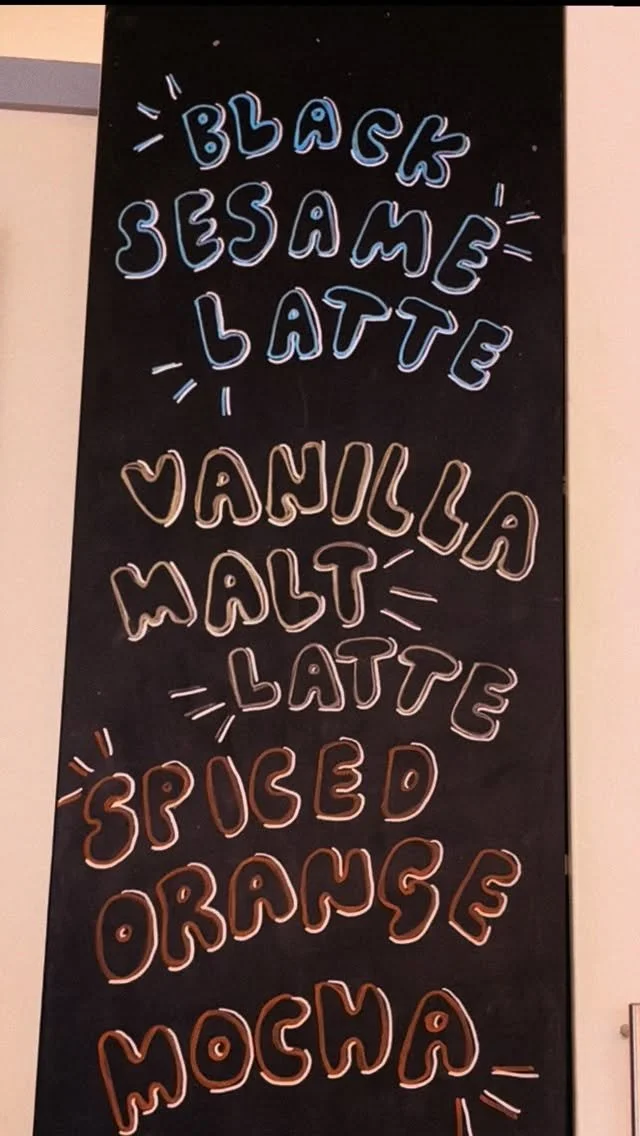 BLACK
SESAME
LATTE
VANILLA
MALT
LATTE
SPICED
ORANGE
MOCHA